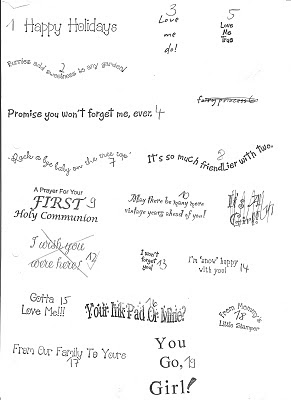 1 Happy Holidays
3
Love
me
do!
5
Love
Me
True
Bunnies add sweetness to any garden!
2
Promise you won't forget me, ever. 4
fairy princess 6
"Rock a bye baby on the tree top"
7
It's so much friendlier with two.
2
A Prayer For Your
FIRST 9
Holy Communion
May there be many more
10
vintage years ahead of you!
It's A
Girl! 11
I wish you
were here! 12
I won't
forget
you! 13
I'm "snow" happy
with you! 14
Gotta 15
Love Me!!!
Your Ink Pad Or Mine?
16
From Mommy's
18
Little Stamper
From Our Family To Yours
17
You
Go, 19
Girl!